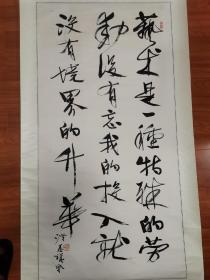 藝术是一種特殊的劳
動没有忘我的投入就
没有境界的升華